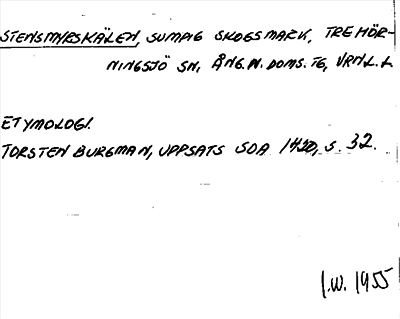 STENSMYRSKÄLEN, SUMPIG SKOGSMARK, TREHÖR-
NINGSJÖ SN, ÅNG.N.DOMS.TG, VRNL.L
ETYMOLOGI.
TORSTEN BURGMAN, UPPSATS SOA 1420, S. 32.
I.W. 1955